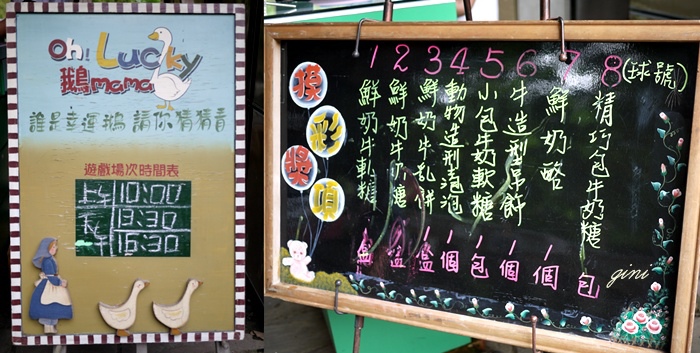 Oh! Lucky
鵝mama
誰是幸運鵝 請你猜猜看
遊戲場次時間表
上午 10:00
下午 13:30
16:30
摸彩獎項
1 2 3 4 5 6 7 8 (球號)
鮮奶牛軋糖 1盒
鮮奶牛奶糖 1盒
鮮奶牛軋餅 1盒
動物造型泡泡 1個
小包牛奶軟糖 1包
牛造型吊飾 1個
鮮奶酪 1個
精巧包牛奶糖 1包
gini